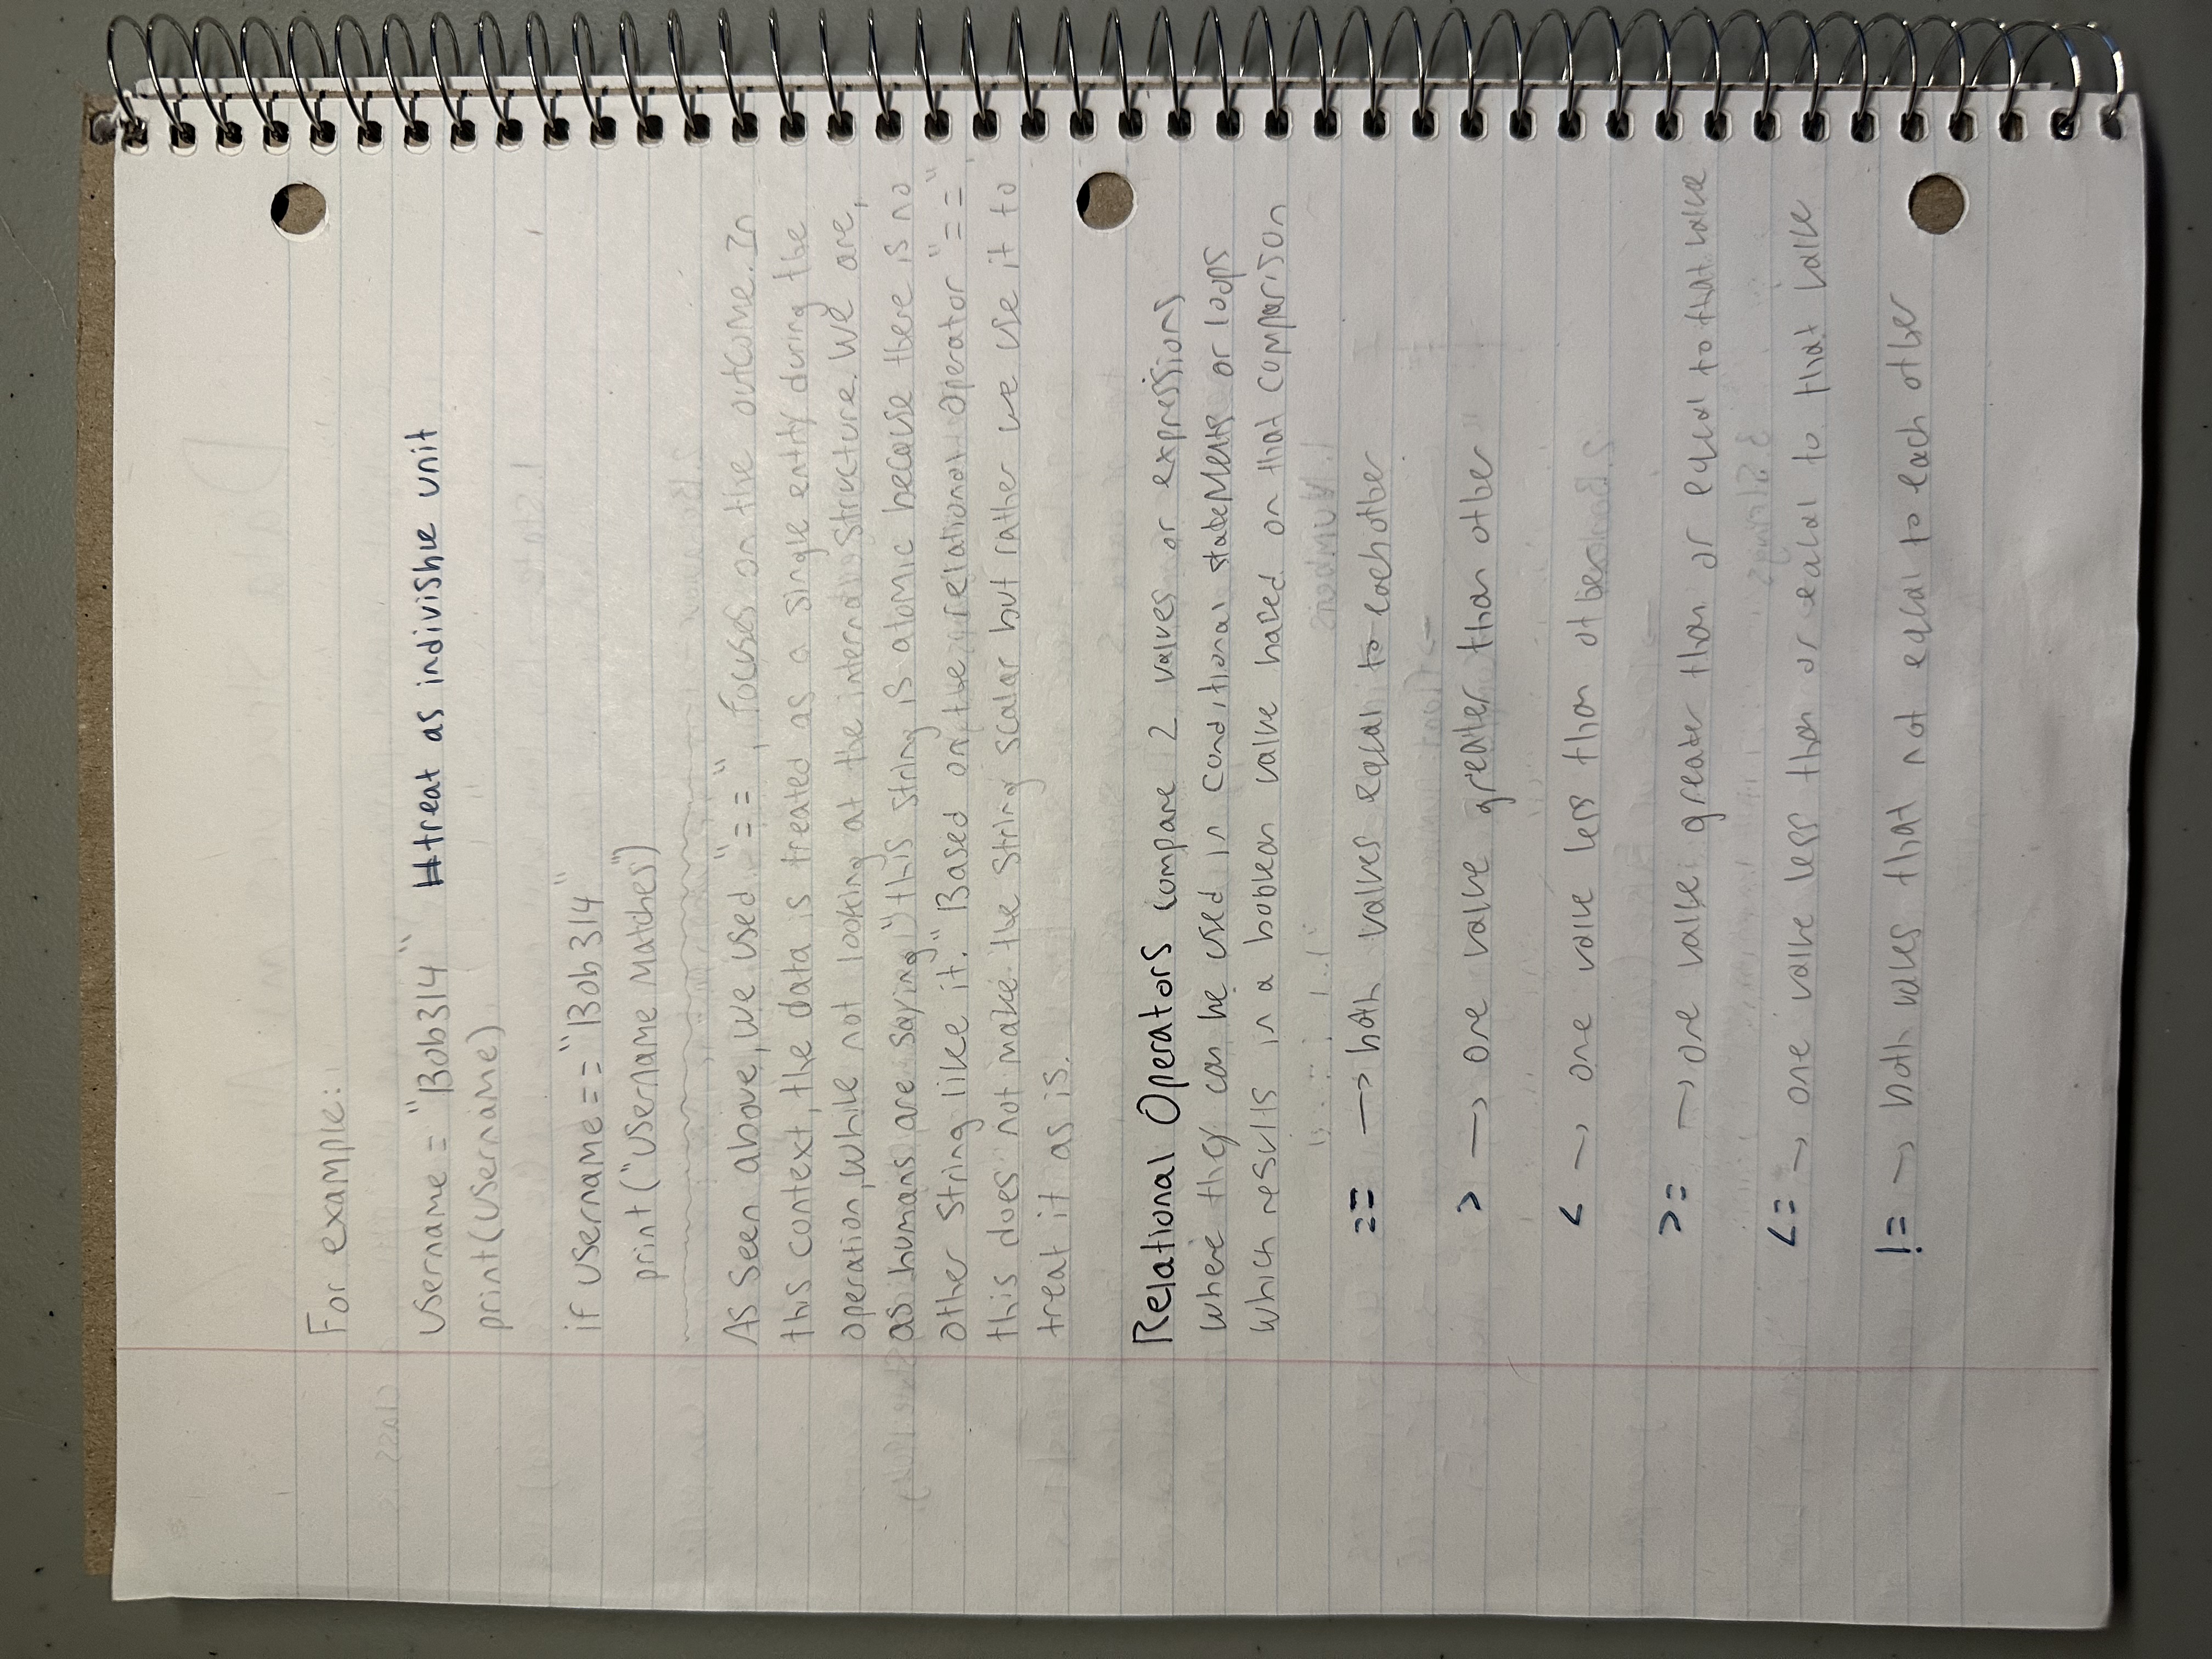 For example:
username = "Bob314" #treat as indivisble unit
print(username)
if username == "Bob314"
print("username matches")
As seen above, we used "==", focuses on the outcome. In
this context, the data is treated as a single entity during the
operation, while not looking at the internal structure. We are,
as humans are saying "this string is atomic because there is no
other string like it." Based on the relational operator "==",
this does not make the string scalar but rather we use it to
treat it as is.
Relational Operators compare 2 values or expressions
where they can be used in conditional statements or loops
which results in a boolean value based on that comparison
== → both values equal to each other
> → one value greater than other
< → one value less than other
>= → one value greater than or equal to that value
<= → one value less than or equal to that value
!= → both values that not equal to each other